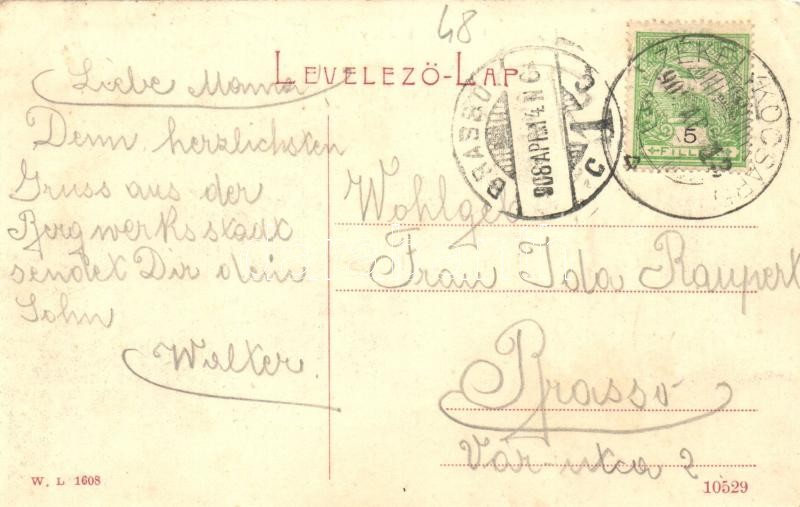 48
LEVELEZŐ-LAP
Liebe Mama
Denn herzlichsten
Gruss aus der
Bergwerksstadt
sendet Dir dein
Sohn
Walter.
BRASSÓ
908 APR 14 N 6
C
5
FILLÉR
Wohlgeb
Frau Ida Raupert
Brassó
Vár-utca 2
W. L 1608
10529